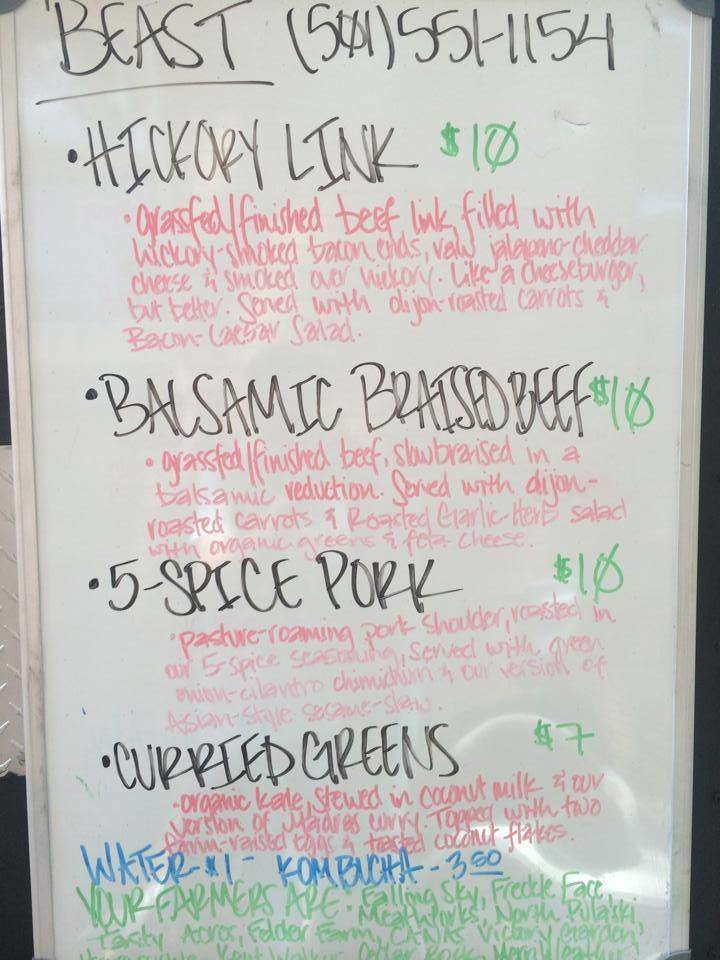 BEAST (501)551-1154
•HICKORY LINK $10
• grassfed/finished beef link, filled with
hickory-smoked bacon ends, raw jalapano-cheddar
cheese & smoked over hickory. Like a cheeseburger,
but better. Served with dijon-roasted carrots &
Bacon-Caesar Salad.
•BALSAMIC BRAISED BEEF $10
• grassfed/finished beef, slow braised in a
balsamic reduction. Served with dijon-
roasted carrots & Roasted Garlic-Herb salad
with organic greens & feta cheese.
•5-SPICE PORK $10
•pasture-roaming pork shoulder, roasted in
our 5-spice seasoning, served with green
onion-cilantro chimichurri & our version of
Asian-style sesame-slaw.
•CURRIED GREENS $7
•organic kale, stewed in coconut milk & our
version of Madras curry. Topped with two
farm-raised eggs & toasted coconut flakes.
WATER $1 - KOMBUCHA - 3.50
YOUR FARMERS ARE: Falling Sky, Freckle Face,
Meatworks, North Pulaski,
Tasty Acres, Felder Farm, CANAS Victory Garden,
Kent Walker, Cedar Rock, Merryweather